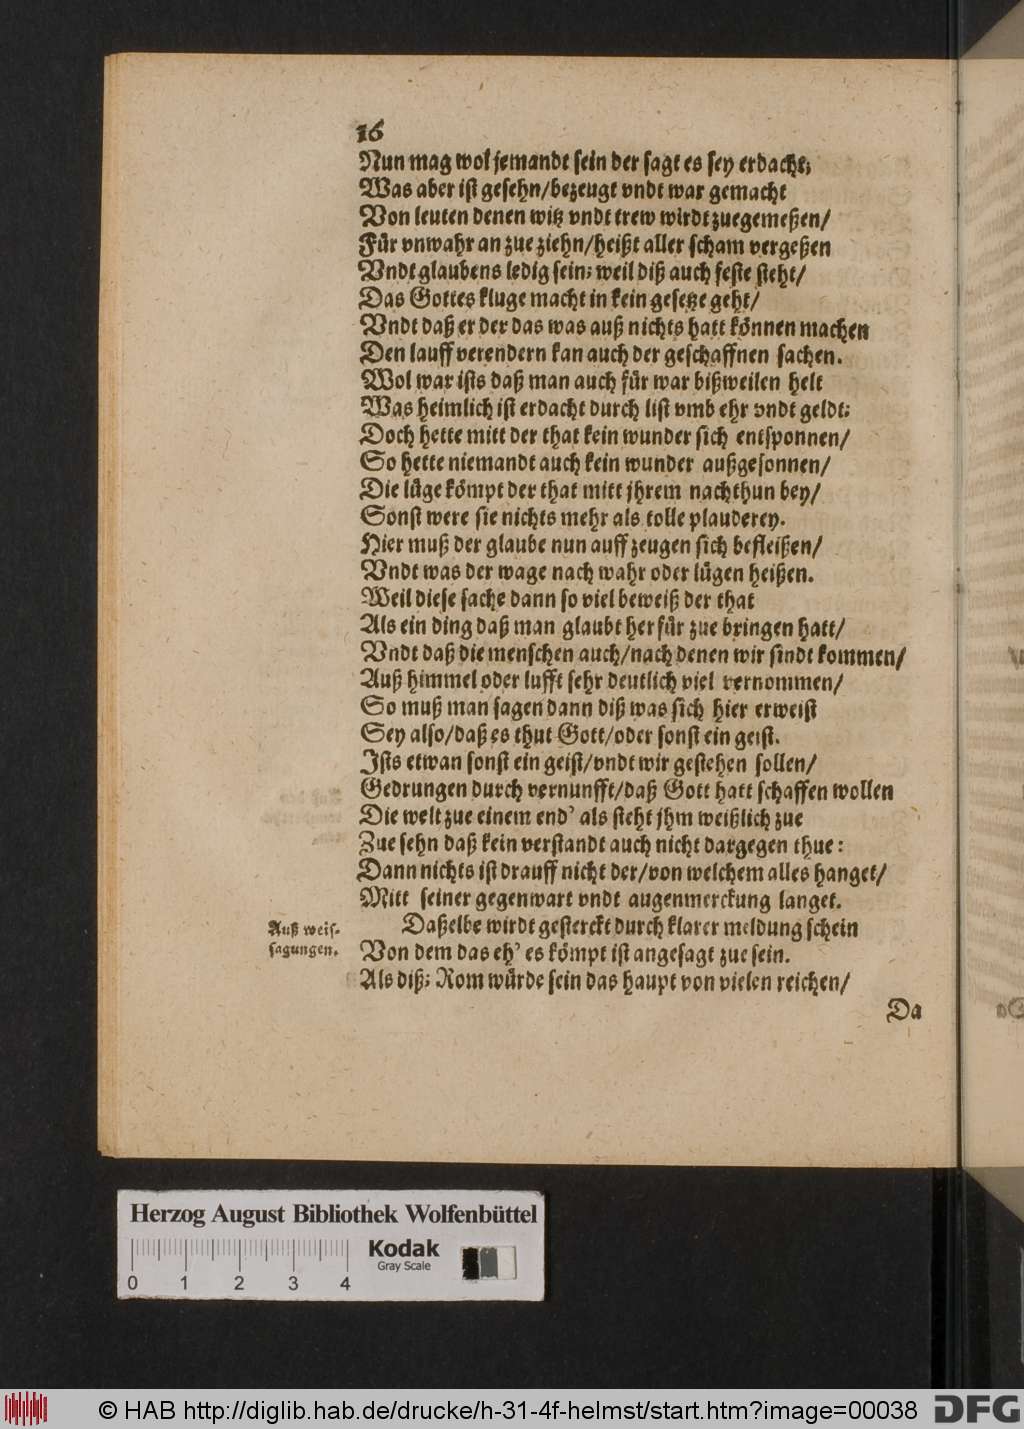 16
Nun mag wol jemandt sein der sagt es sey erdacht;
Was aber ist gesehn/bezeugt vndt war gemacht
Von leuten denen witz vndt trew wirdt zuegemeßen/
Für vnwahr an zue ziehn/heißt aller scham vergeßen
Vndt glaubens ledig sein; weil diß auch feste steht/
Das Gottes kluge macht in kein gesetze geht/
Vndt daß er der das was auß nichts hatt können machen
Den lauff verendern kan auch der geschaffnen sachen.
Wol war ists daß man auch für war bißweilen helt
Was heimlich ist erdacht durch list vmb ehr vndt geldt;
Doch hette mitt der that kein wunder sich entsponnen/
So hette niemandt auch kein wunder außgesonnen/
Die lüge kömpt der that mitt jhrem nachthun bey/
Sonst were sie nichts mehr als tolle plauderey.
Hier muß der glaube nun auff zeugen sich befleißen/
Vndt was der wage nach wahr oder lügen heißen.
Weil diese sache dann so viel beweiß der that
Als ein ding daß man glaubt herfür zue bringen hatt/
Vndt daß die menschen auch/nach denen wir sindt kommen/
Auß himmel oder lufft sehr deutlich viel vernommen/
So muß man sagen dann diß was sich hier erweist
Sey also/daß es thut Gott/oder sonst ein geist.
Ists etwan sonst ein geist/vndt wir gestehen sollen/
Gedrungen durch vernunfft/daß Gott hatt schaffen wollen
Die welt zue einem end' als steht jhm weißlich zue
Zue sehn daß kein verstandt auch nicht dargegen thue:
Dann nichts ist drauff nicht der/von welchem alles hanget/
Mitt seiner gegenwart vndt augenmerckung langet.
Auß weis-
sagungen.
Daßelbe wirdt gesterckt durch klarer meldung schein
Von dem das eh' es kömpt ist angesagt zue sein.
Als diß; Rom würde sein das haupt von vielen reichen/
Da
Herzog August Bibliothek Wolfenbüttel
Kodak
Gray Scale
0 1 2 3 4
© HAB http://diglib.hab.de/drucke/h-31-4f-helmst/start.htm?image=00038
DFG